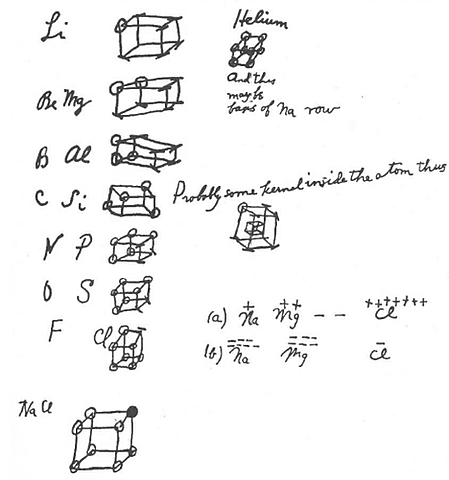 Li
Helium
Be Mg
And this
may be
basis of Na row
B Al
C Si
Probably some kernel inside the atom thus
N P
O S
F Cl
(a) + Na ++ Mg - - +++++++ Cl
(b) Na Mg - Cl
Na Cl